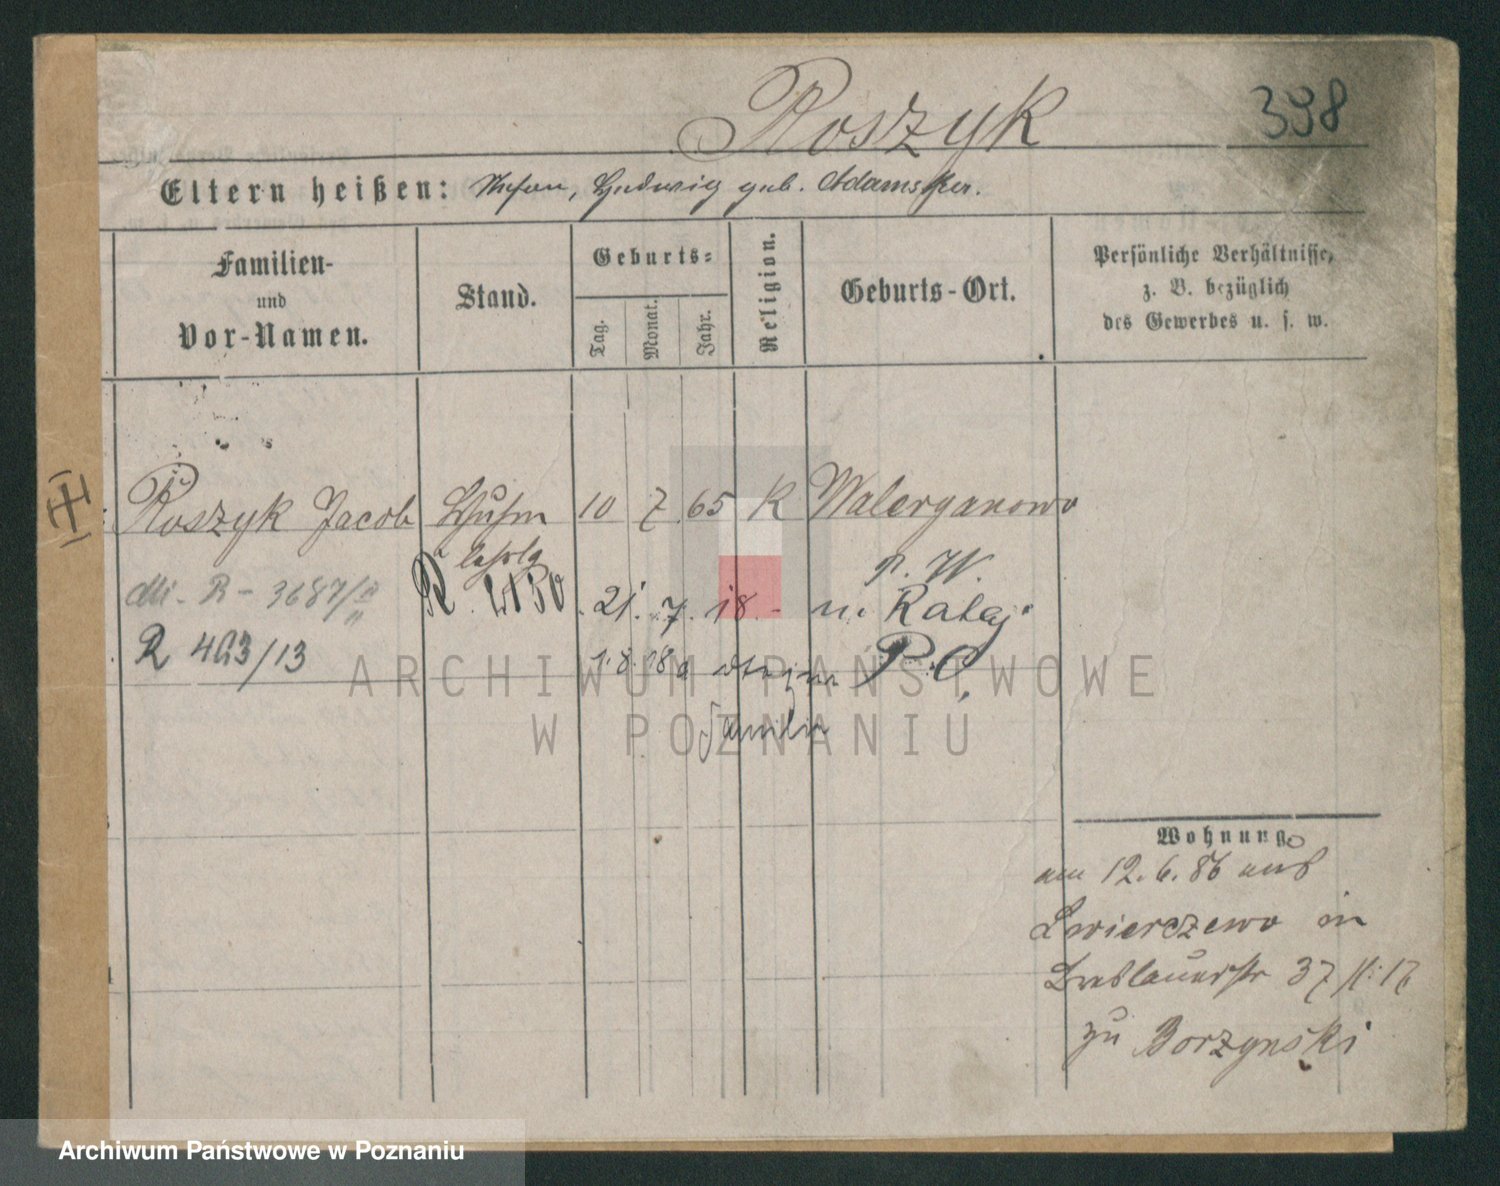 Roszyk
398
Eltern heißen: Stefan, Hedwig geb. Adamska.
Familien-
und
Vor-Namen.
Stand.
Geburts-
Tag.
Monat.
Jahr.
Religion.
Geburts-Ort.
Persönliche Verhältnisse,
z. B. bezüglich
des Gewerbes u. s. w.
Roszyk Jacob 10 7 65 K Walerganowo
R - 3687/
21. 7. 18 - n. Rataj
R 463/13
1.8.18
P. C.
Familie
Wohnung
am 12.6.86 aus
Kwierczewo in
Breslauerstr 37
zu Borzynski
ARCHIWUM PAŃSTWOWE
W POZNANIU
Archiwum Państwowe w Poznaniu